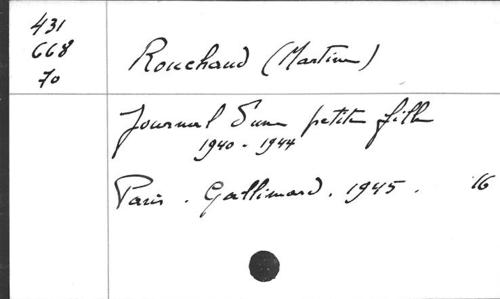 431
668
70
Rouchaud (Martine)
Journal d'une petite fille
1940 - 1944
Paris . Gallimard . 1945 . 16